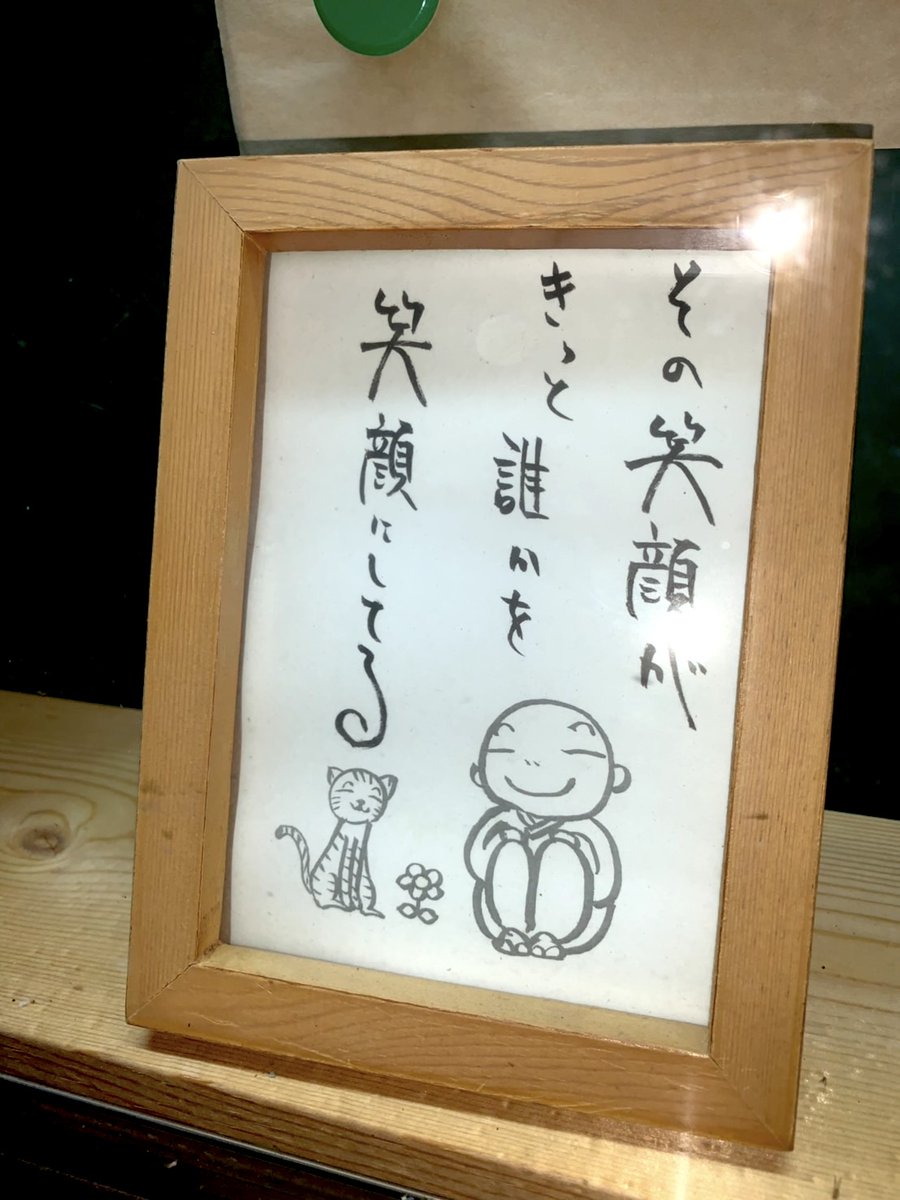 その笑顔が
きっと誰かを
笑顔にしてる